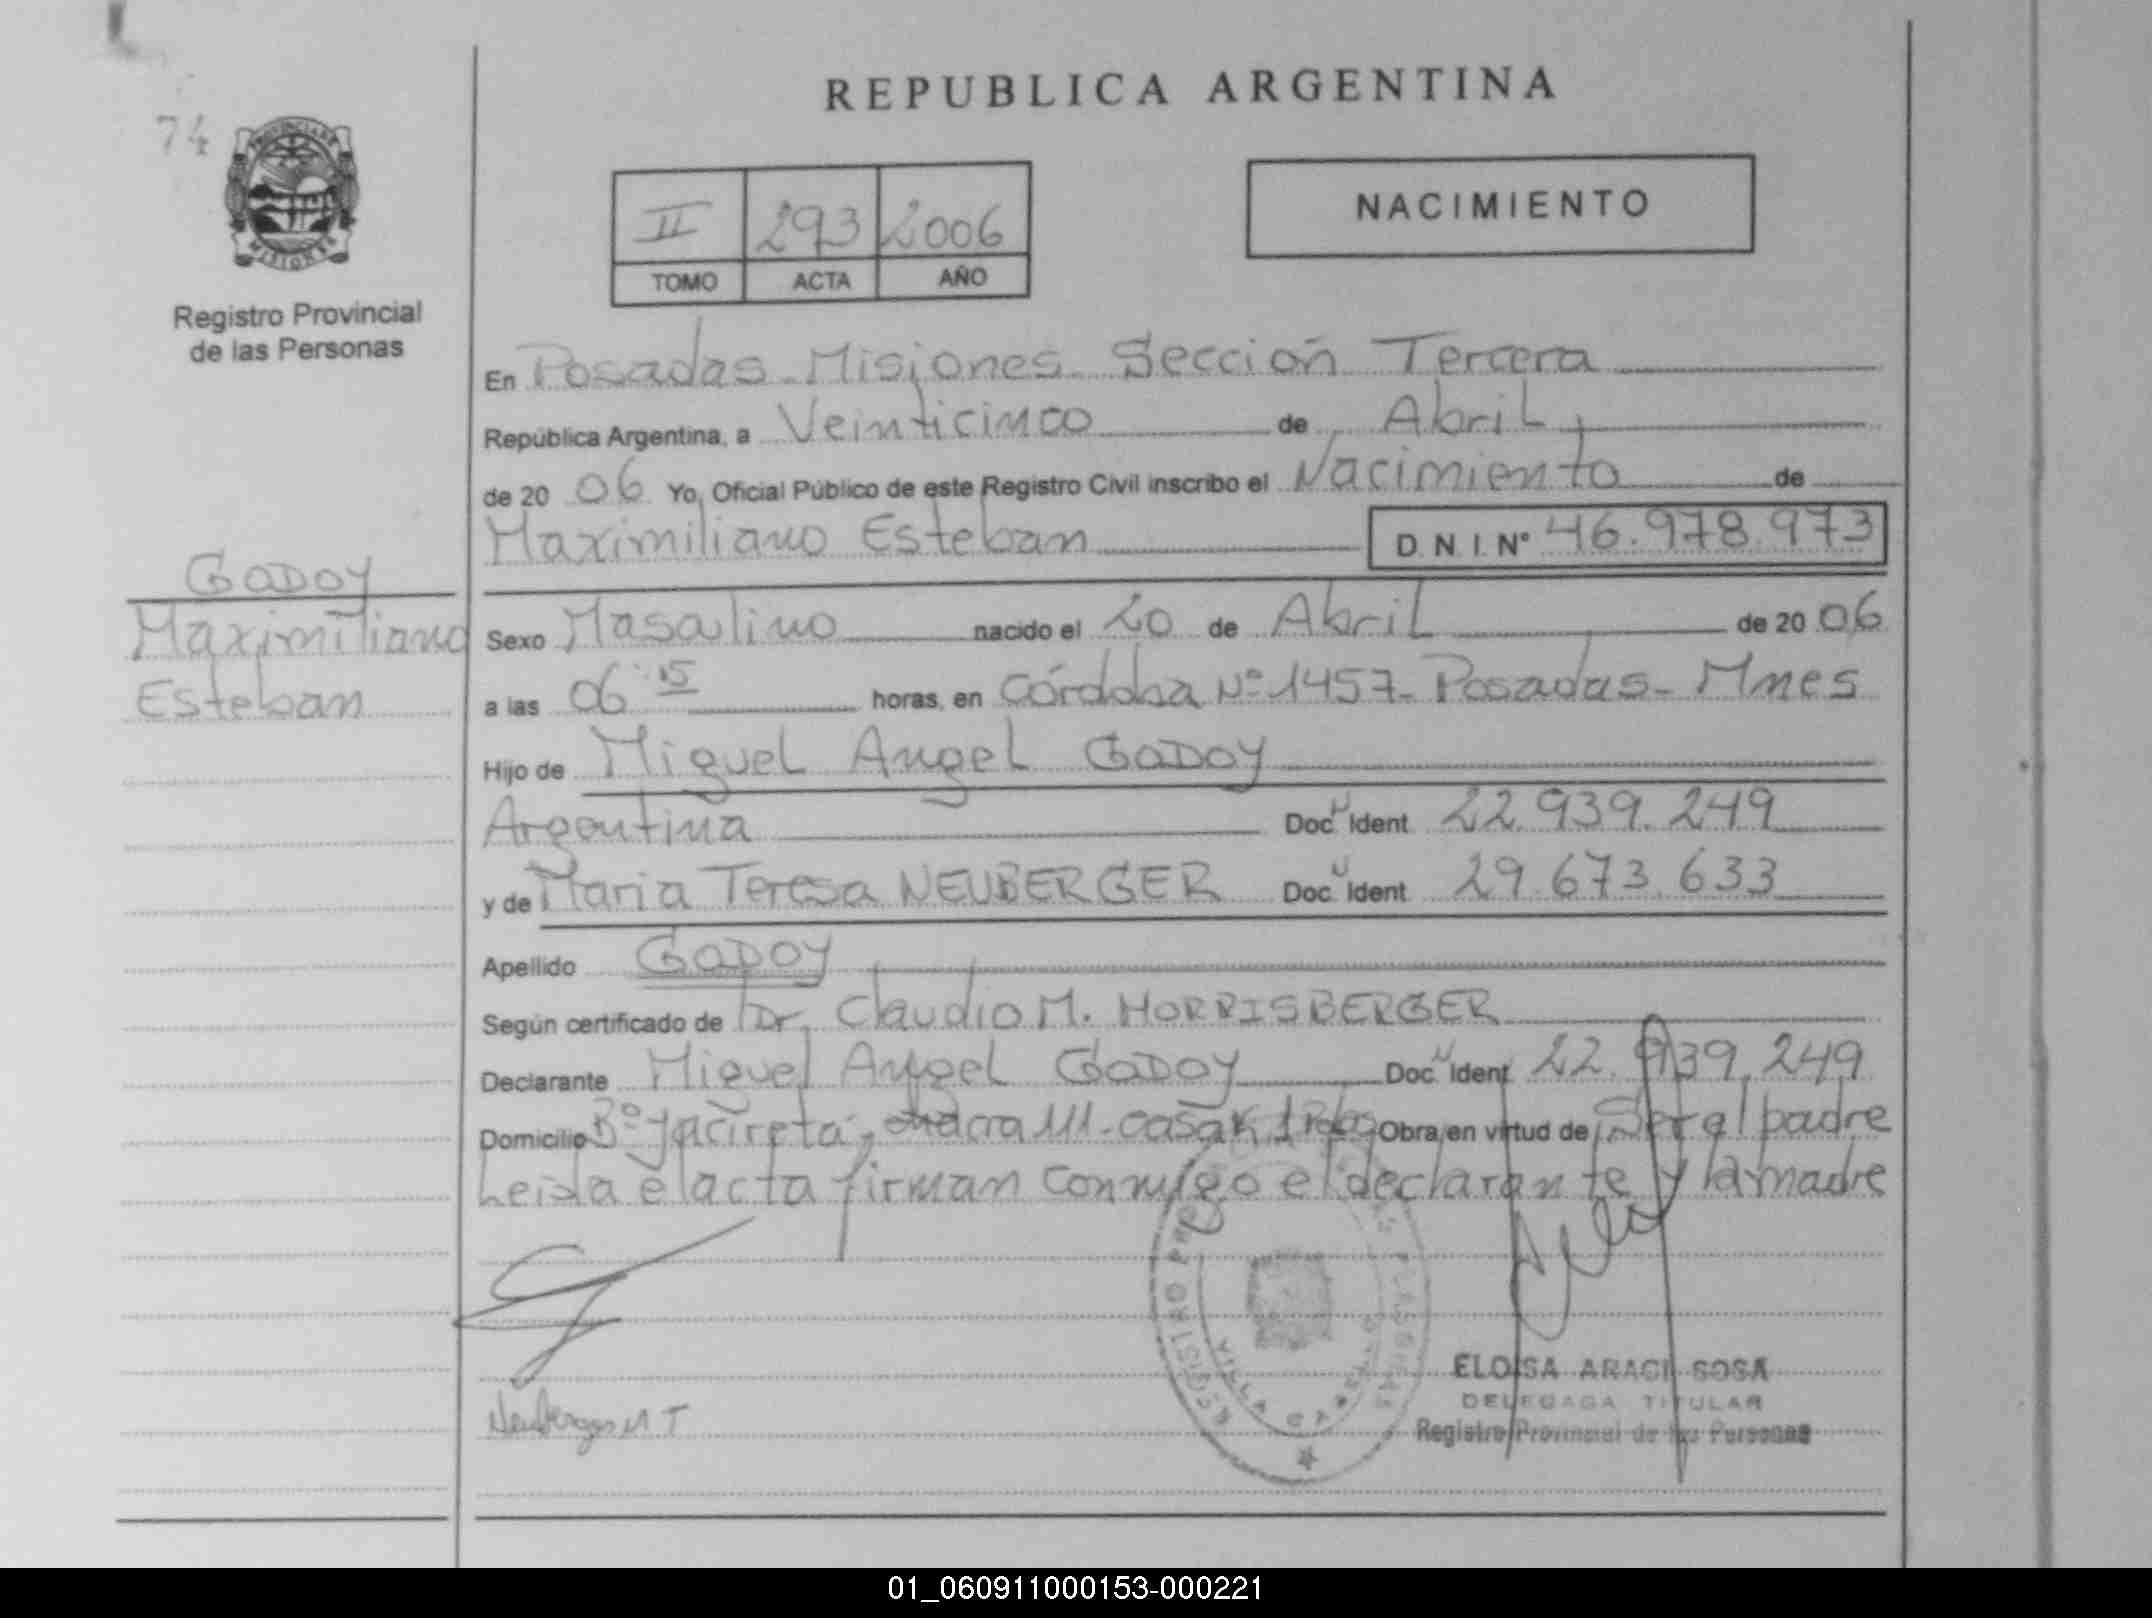 REPUBLICA ARGENTINA
74
PROVINCIA DE
MISIONES
Registro Provincial
de las Personas
II 293 2006
TOMO ACTA AÑO
NACIMIENTO
En Posadas - Misiones - Sección Tercera
República Argentina, a Veinticinco de Abril
de 20 06 Yo, Oficial Público de este Registro Civil inscribo el Nacimiento de
Maximiliano Esteban D.N.I. N° 46.978.973
GODOY
Maximiliano
Esteban
Sexo Masculino nacido el 20 de Abril de 20 06
a las 06 15 horas, en Córdoba N° 1457 - Posadas - Mnes
Hijo de Miguel Angel GODOY
Argentina Doc N Ident 22.939.249
y de Maria Teresa NEUBERGER Doc N Ident 29.673.633
Apellido GODOY
Según certificado de Dr. Claudio M. HORRISBERGER
Declarante Miguel Angel GODOY Doc N Ident 22.939.249
Domicilio B° Yacireta, chacra 111 - casa Obra en virtud de Ser el padre
Leida el acta firman conmigo el declarante y la madre
Neuberger M T
REGISTRO
VILLA
ELOISA ARACI SOSA
DELEGADA TITULAR
Registro Provincial de las Personas
01_060911000153-000221